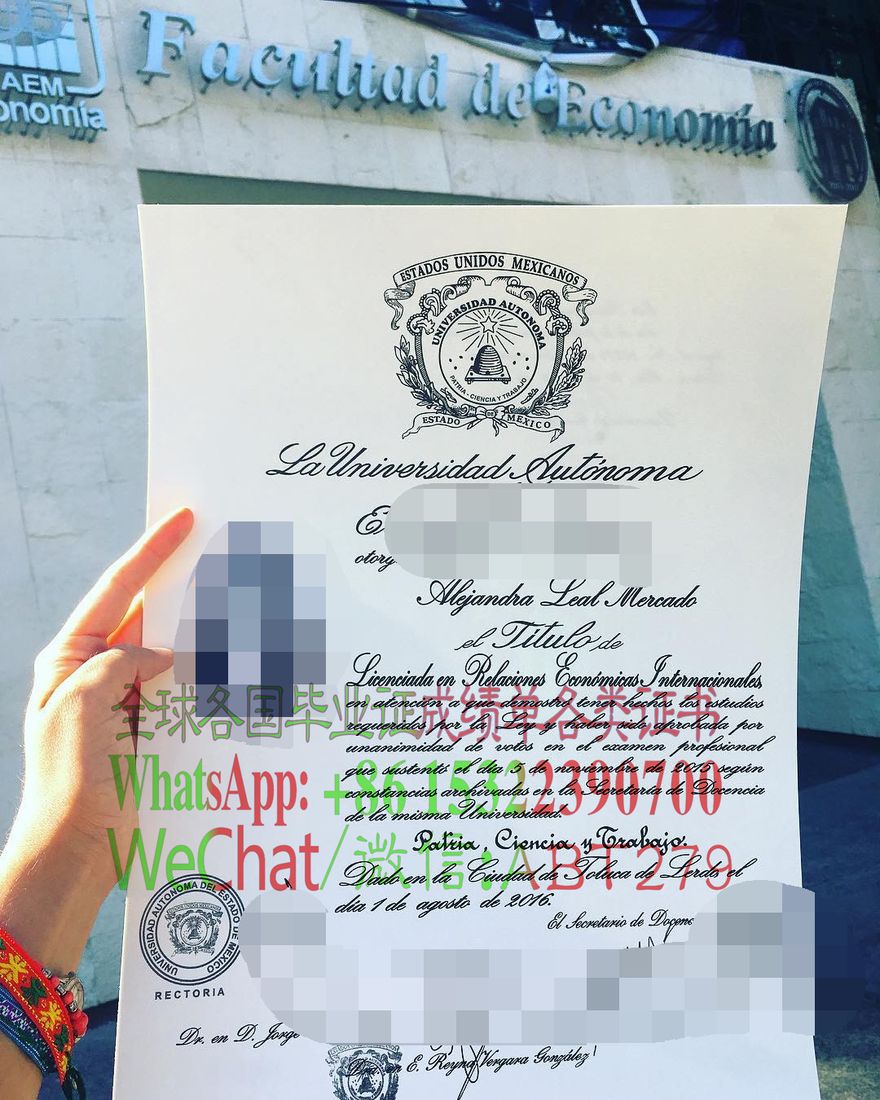 AEM
onomía
Facultad de Economía
ESTADOS UNIDOS MEXICANOS
UNIVERSIDAD AUTONOMA
PATRIA - CIENCIA Y TRABAJO
ESTADO DE MEXICO
La Universidad Autónoma
E
otorg
Alejandra Leal Mercado
el Título de
Licenciada en Relaciones Económicas Internacionales
en atención a que demostró tener hechos los estudios
requeridos por la Ley y haber sido aprobada por
unanimidad de votos en el examen profesional
que sustentó el día 5 de noviembre de 2015 según
constancias archivadas en la Secretaría de Docencia
de la misma Universidad.
Patria, Ciencia y Trabajo.
Dado en la Ciudad de Toluca de Lerdo el
día 1 de agosto de 2016.
全球各国毕业证成绩单各类证书
WhatsApp: +86 15322390700
WeChat/微信:ABT279
El Secretario de Docenc
UNIVERSIDAD AUTONOMA DEL ESTADO DE MEXICO
RECTORIA
Dr. en D. Jorge
Dra. en E. Reyna Vergara González